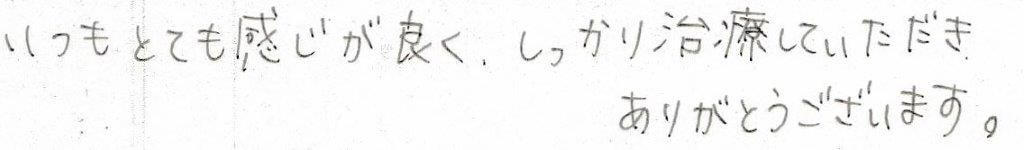 いつもとても感じが良く、しっかり治療していただき
ありがとうございます。